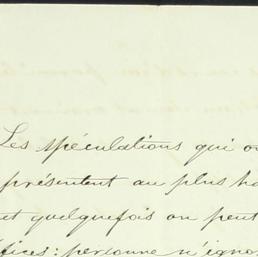 Les spéculations qui o
présentent au plus ha
et quelquefois on peut
fices: personne n'ignor